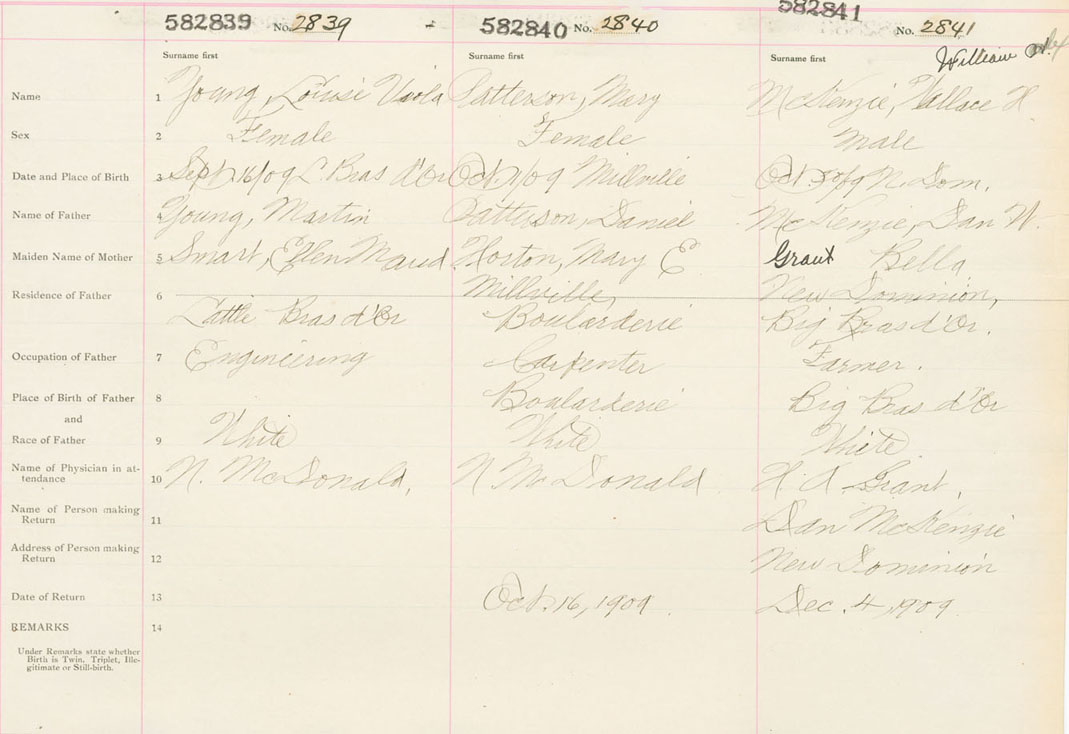 582839 No. 2839 582840 No. 2840 582841 No. 2841
Surname first Surname first Surname first William
Name 1 Young, Louise Viola Patterson, Mary McKenzie, Wallace H
Sex 2 Female Female Male
Date and Place of Birth 3 Sept. 16/09 L. Bras d'Or Oct. 1/09 Millville Oct. N. Dom.
Name of Father 4 Young, Martin Patterson, Daniel McKenzie, Dan W.
Maiden Name of Mother 5 Smart, Ellen Maud Horton, Mary E Grant Bella
Residence of Father 6 Millville, New Dominion,
Little Bras d'Or Boularderie Big Bras d'Or.
Occupation of Father 7 Engineering Carpenter Farmer.
Place of Birth of Father 8 Boularderie Big Bras d'Or
and
Race of Father 9 White White White
Name of Physician in at-
tendance 10 N. McDonald, N McDonald H A Grant,
Name of Person making
Return 11 Dan McKenzie
Address of Person making
Return 12 New Dominion
Date of Return 13 Oct. 16, 1909 Dec. 4, 1909
REMARKS 14
Under Remarks state whether
Birth is Twin, Triplet, Ille-
gitimate or Still-birth.